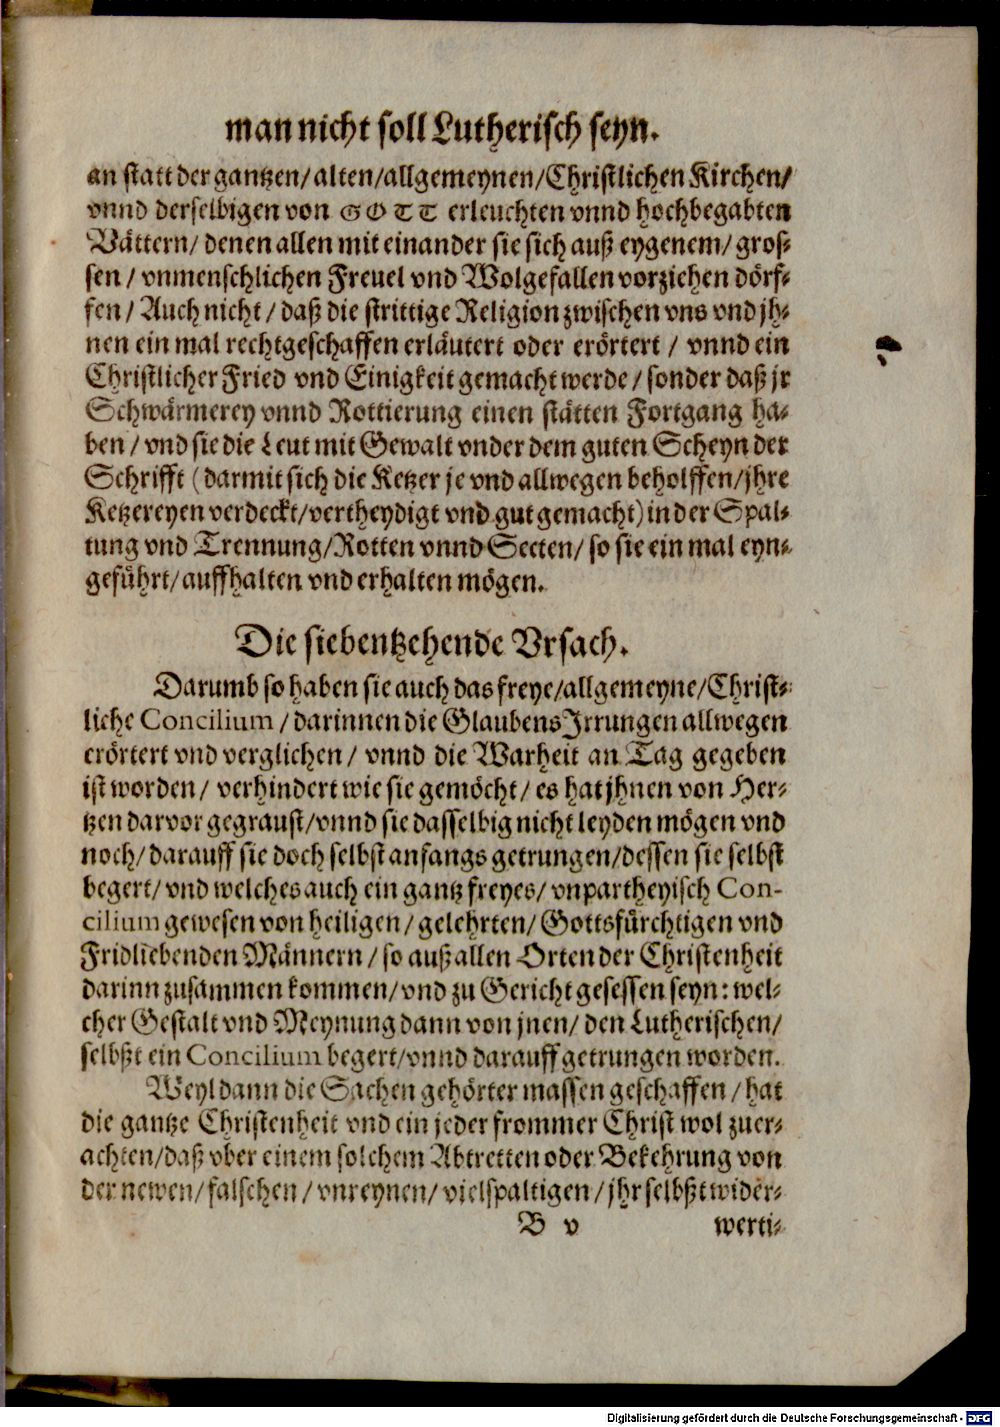 man nicht soll Lutherisch seyn.
an statt der gantzen/ alten/ allgemeynen/ Christlichen Kirchen/
vnnd derselbigen von GOTT erleuchten vnnd hochbegabten
Vättern/ denen allen mit einander sie sich auß eygenem/ gros-
sen/ vnmenschlichen Freuel vnd Wolgefallen vorziehen dörf-
fen/ Auch nicht/ daß die strittige Religion zwischen vns vnd jh-
nen ein mal rechtgeschaffen erläutert oder erörtert/ vnnd ein
Christlicher Fried vnd Einigkeit gemacht werde/ sonder daß jr
Schwärmerey vnnd Rottierung einen stätten Fortgang ha-
ben/ vnd sie die Leut mit Gewalt vnder dem guten Scheyn der
Schrifft (darmit sich die Ketzer je vnd allwegen beholffen/ jhre
Ketzereyen verdeckt/ vertheydigt vnd gut gemacht) in der Spal-
tung vnd Trennung/ Rotten vnnd Secten/ so sie ein mal eyn-
geführt/ auffhalten vnd erhalten mögen.
Die siebentzehende Vrsach.
Darumb so haben sie auch das freye/ allgemeyne/ Christ-
liche Concilium/ darinnen die Glaubens Jrrungen allwegen
erörtert vnd verglichen/ vnnd die Warheit an Tag gegeben
ist worden/ verhindert wie sie gemöcht/ es hat jhnen von Her-
tzen darvor gegraust/ vnnd sie dasselbig nicht leyden mögen vnd
noch/ darauff sie doch selbst anfangs getrungen/ dessen sie selbst
begert/ vnd welches auch ein gantz freyes/ vnpartheyisch Con-
cilium gewesen von heiligen/ gelehrten/ Gottsfürchtigen vnd
Fridliebenden Männern/ so auß allen Orten der Christenheit
darinn zusammen kommen/ vnd zu Gericht gesessen seyn: wel-
cher Gestalt vnd Meynung dann von jnen/ den Lutherischen/
selbßt ein Concilium begert/ vnnd darauff getrungen worden.
Weyl dann die Sachen gehörter massen geschaffen/ hat
die gantze Christenheit vnd ein jeder frommer Christ wol zuer-
achten/ daß vber einem solchem Abtretten oder Bekehrung von
der newen/ falschen/ vnreynen/ vielspaltigen/ jhr selbßt wider-
B v werti-
Digitalisierung gefördert durch die Deutsche Forschungsgemeinschaft - DFG